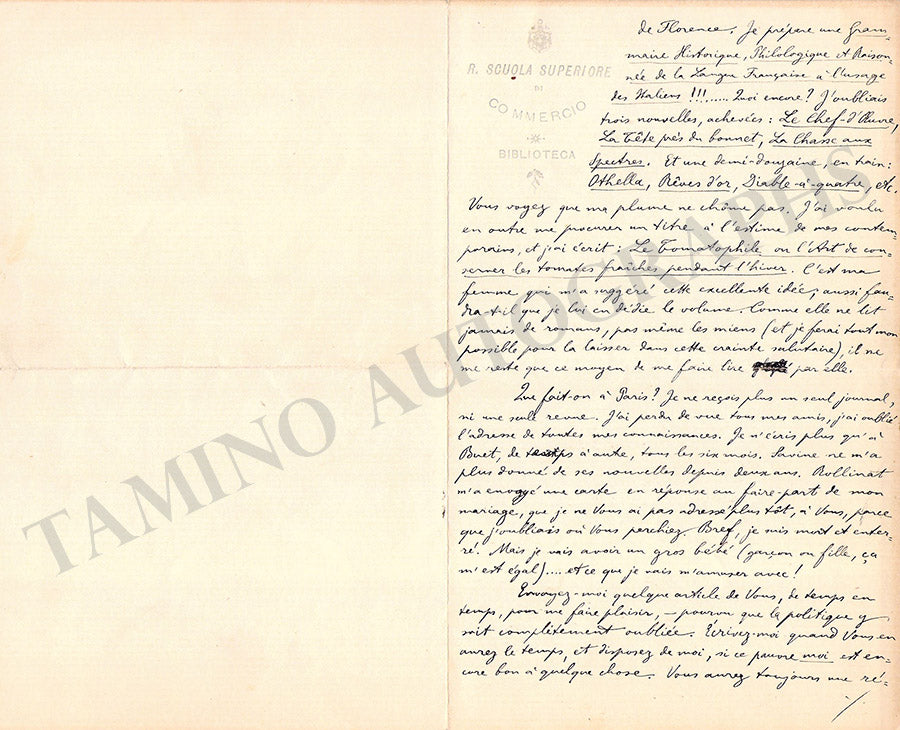 R. SCUOLA SUPERIORE
DI
COMMERCIO
BIBLIOTECA
de Florence. Je prépare une Gram-
maire Historique, Philologique et Raison-
née de la Langue Française à l'usage
des Italiens !!!..... Quoi encore? J'oubliais
trois nouvelles, achevées : Le Chef-d'Œuvre,
La Tête près du bonnet, La Chasse aux
Spectres. Et une demi-douzaine, en train :
Othella, Rêves d'or, Diable-à-quatre, etc.
Vous voyez que ma plume ne chôme pas. J'ai voulu
en outre me procurer un titre à l'estime de mes contem-
porains, et j'ai écrit : Le Tomatophile ou l'Art de con-
server les tomates fraîches pendant l'hiver. C'est ma
femme qui m'a suggéré cette excellente idée; aussi fau-
dra-t-il que je lui en dédie le volume. Comme elle ne lit
jamais de romans, pas même les miens (et je ferai tout mon
possible pour la laisser dans cette crainte salutaire), il ne
me reste que ce moyen de me faire lire par elle.
Que fait-on à Paris? Je ne reçois plus un seul journal,
ni une seule revue. J'ai perdu de vue tous mes amis, j'ai oublié
l'adresse de toutes mes connaissances. Je n'écris plus qu'à
Buet, de temps à autre, tous les six mois. Savine ne m'a
plus donné de ses nouvelles depuis deux ans. Rollinat
m'a envoyé une carte en réponse au faire-part de mon
mariage, que je ne Vous ai pas adressé plus tôt, à Vous, parce
que j'oubliais où Vous perchiez. Bref, je suis mort et enter-
ré. Mais je vais avoir un gros bébé (garçon ou fille, ça
m'est égal).... et ce que je vais m'amuser avec!
Envoyez-moi quelque article de Vous, de temps en
temps, pour me faire plaisir, — pourvu que la politique y
soit complètement oubliée. Écrivez-moi quand Vous en
aurez le temps, et disposez de moi, si ce pauvre moi est en-
core bon à quelque chose. Vous aurez toujours une ré-
./.
TAMINO AUTOGRAPHS